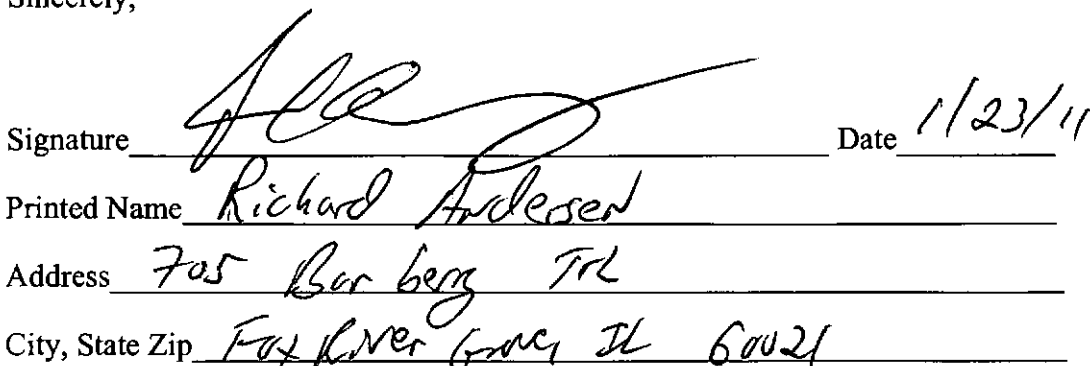 Sincerely,
Signature Date 1/23/11
Printed Name Richard Andersen
Address 705 Barberry Trl
City, State Zip Fox River Grove, IL 60021